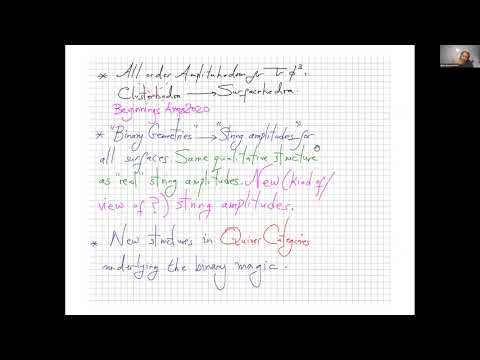 * All order Amplituhedron for Tr φ³.
Clusterhedra → Surfacehedra.
Beginnings Amps2020
* "Binary Geometries" → "String amplitudes" for
all surfaces. Same qualitative structure
as "real" string amplitudes. New (kind of/
view of?) string amplitudes.
* New structures in Quiver Categories
underlying the binary magic.